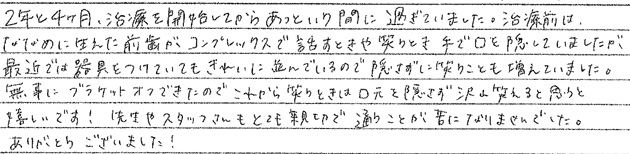 2年と4ヶ月、治療を開始してからあっという間に過ぎていました。治療前は、
ななめに生えた前歯がコンプレックスで話すときや笑うとき手で口を隠していましたが
最近では器具をつけていてもきれいに並んでいるので隠さずに笑うことも増えていました。
無事にブラケットオフできたのでこれから笑うときは口元を隠さず沢山笑えると思うと
嬉しいです！先生やスタッフさんもとても親切で通うことが苦になりませんでした。
ありがとうございました！